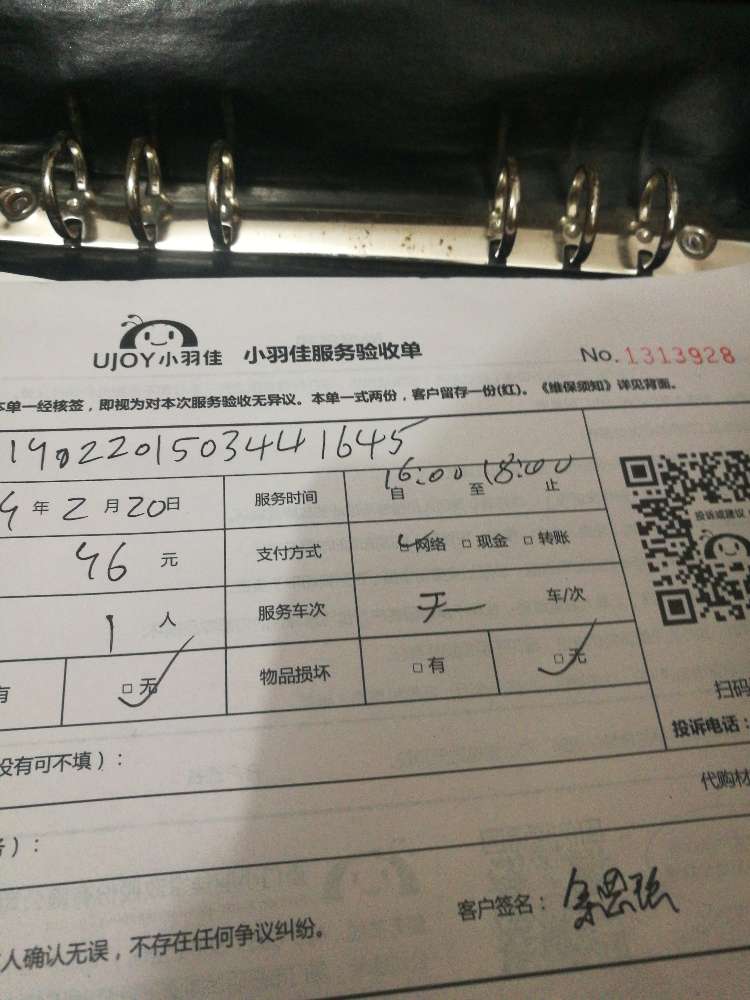 UJOY小羽佳 小羽佳服务验收单 No.1313928
本单一经核签，即视为对本次服务验收无异议。本单一式两份，客户留存一份(红)。《维保须知》详见背面。
投诉或建议
190220150344 1645
9年2月20日 服务时间 16:00自 至18:00止
46元 支付方式 □网络 □现金 □转账
1人 服务车次 无 车/次
有 □无 物品损坏 □有 □无
扫码
投诉电话：
没有可不填）：
代购材
）：
客户签名：
人确认无误，不存在任何争议纠纷。